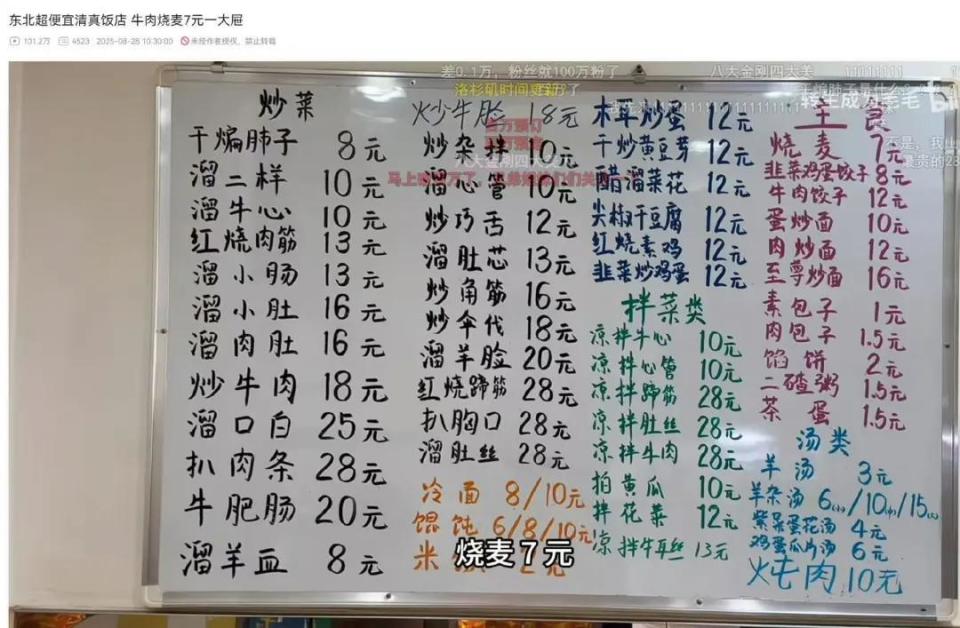 东北超便宜清真饭店 牛肉烧麦7元一大屉
101.2万 4523 2025-08-28 10:30:00 未经作者授权,禁止转载
差0.1万,粉丝就100万粉了
八大金刚四大美
11111111
洛杉矶时间更新了
转生成为老毛
炒菜
干煸肺子 8元
溜二样 10元
溜牛心 10元
红烧肉筋 13元
溜小肠 13元
溜小肚 16元
溜肉肚 16元
炒牛肉 18元
溜口白 25元
扒肉条 28元
牛肥肠 20元
溜羊血 8元
炒牛脸 18元
炒杂拌 10元
溜心管 10元
炒巧舌 12元
溜肚芯 13元
炒角筋 16元
炒伞代 18元
溜羊脸 20元
红烧蹄筋 28元
扒胸口 28元
溜肚丝 28元
冷面 8/10元
馄饨 6/8/10元
米 2元
木耳炒蛋 12元
干炒黄豆芽 12元
醋溜菜花 12元
尖椒干豆腐 12元
红烧素鸡 12元
韭菜炒鸡蛋 12元
拌菜类
凉拌牛心 10元
凉拌心管 10元
凉拌蹄筋 28元
凉拌肚丝 28元
凉拌牛肉 28元
拍黄瓜 10元
拌花菜 12元
凉拌牛耳丝 13元
主食
烧麦 7元
韭菜鸡蛋饺子 8元
牛肉饺子 12元
蛋炒面 10元
肉炒面 12元
至尊炒面 16元
素包子 1元
肉包子 1.5元
馅饼 2元
二碴粥 1.5元
茶蛋 1.5元
汤类
羊汤 3元
羊杂汤 6(小)/10(中)/15(大)
紫菜蛋花汤 4元
鸡蛋瓜片汤 6元
炖肉 10元
烧麦7元